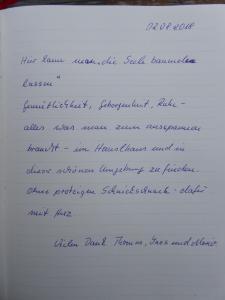 02.08.2018
Hier kann man „die Seele baumeln
lassen“
Gemütlichkeit, Geborgenheit, Ruhe -
alles was man zum entspannen
braucht - im Hauslhaus und in
dieser schönen Umgebung zu finden.
ohne protzigen Schnickschnack - dafür
mit Herz
Vielen Dank Thomas, und